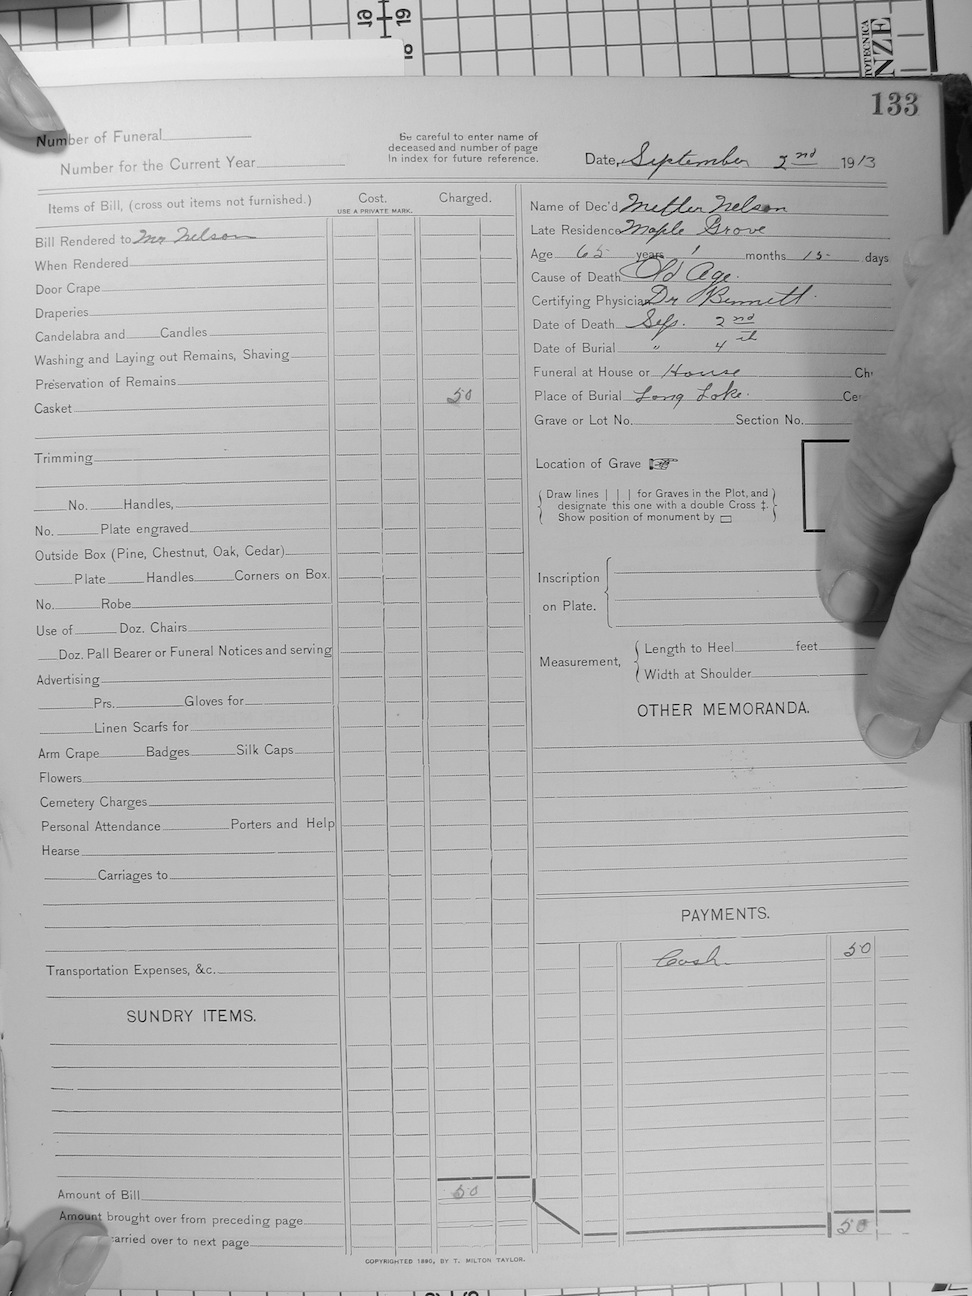 133
Number of Funeral
Number for the Current Year
Be careful to enter name of
deceased and number of page
In index for future reference.
Date, September 2nd 1913
Items of Bill, (cross out items not furnished.)
Cost.
USE A PRIVATE MARK.
Charged.
Bill Rendered to Mr Nelson
When Rendered
Door Crape
Draperies
Candelabra and Candles
Washing and Laying out Remains, Shaving
Preservation of Remains
Casket 50
Trimming
No. Handles,
No. Plate engraved
Outside Box (Pine, Chestnut, Oak, Cedar)
Plate Handles Corners on Box.
No. Robe
Use of Doz. Chairs
Doz. Pall Bearer or Funeral Notices and serving
Advertising
Prs. Gloves for
Linen Scarfs for
Arm Crape Badges Silk Caps
Flowers
Cemetery Charges
Personal Attendance Porters and Help
Hearse
Carriages to
Transportation Expenses, &c.
SUNDRY ITEMS.
Amount of Bill 50
Amount brought over from preceding page
carried over to next page
Name of Dec'd Nelson
Late Residence Maple Grove
Age 65 years 1 months 15 days
Cause of Death Old Age.
Certifying Physician Dr Bennett.
Date of Death Sep. 2nd
Date of Burial " 4th
Funeral at House or House Ch
Place of Burial Long Lake. Ce
Grave or Lot No. Section No.
Location of Grave
Draw lines | | | for Graves in the Plot, and
designate this one with a double Cross ‡.
Show position of monument by ▭
Inscription
on Plate.
Measurement,
Length to Heel feet
Width at Shoulder
OTHER MEMORANDA.
PAYMENTS.
Cash 50
50
COPYRIGHTED 1890, BY T. MILTON TAYLOR.